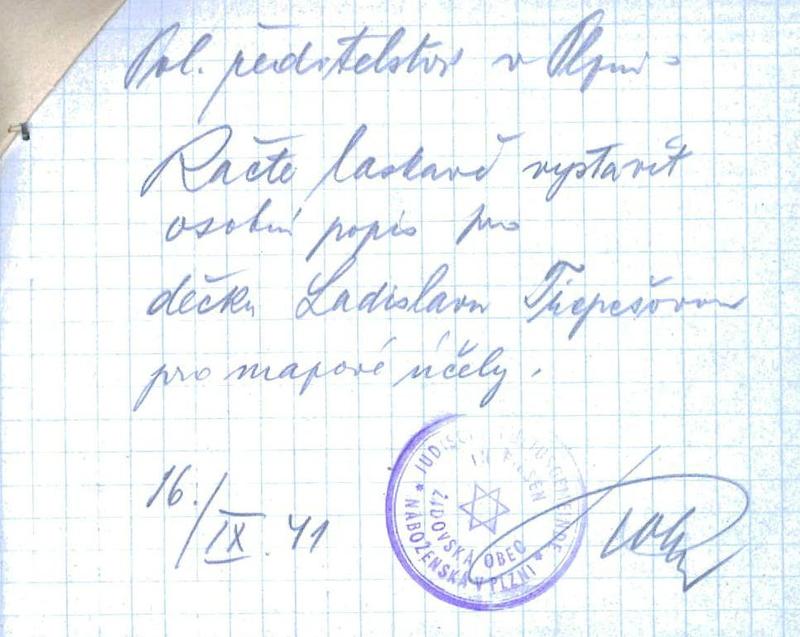 Pol. ředitelství v Plzni.
Račte laskavě vystavit
osobní popis pro
déčku Ladislavu
pro mapové účely.
16./IX. 41
JÜDISCHE KULTUSGEMEINDE
IN PILSEN
ŽIDOVSKÁ OBEC
NÁBOŽENSKÁ V PLZNI